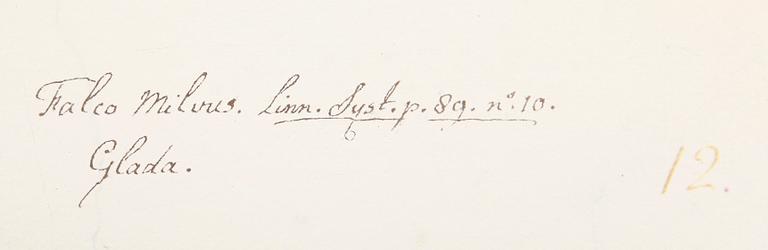 Falco Milvus. Linn. Syst. p. 89. nº. 10.
6
Glada.
12.